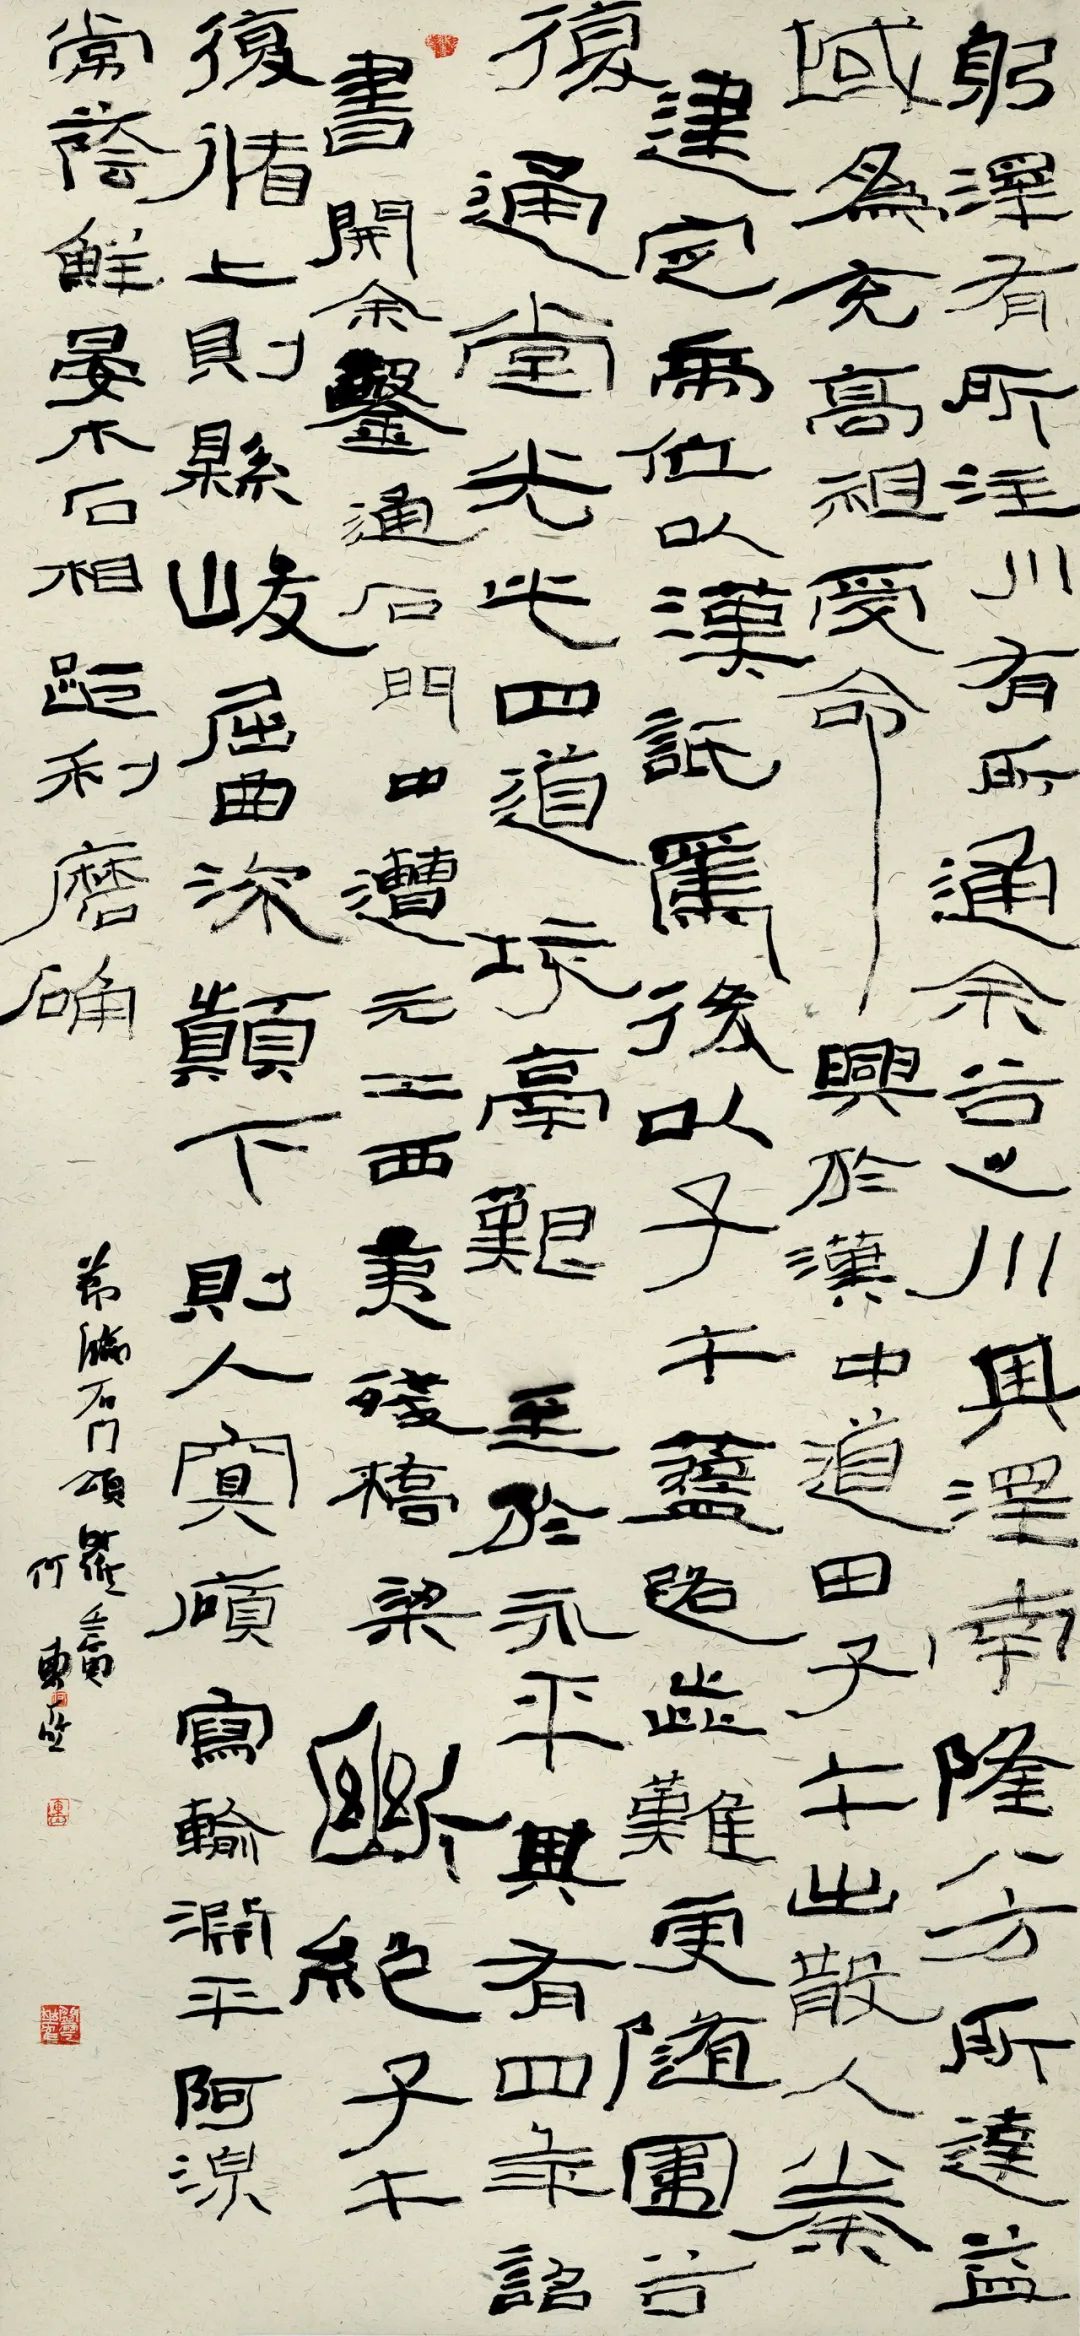 躬澤有所注川有所通余谷之川其澤南隆八方所達益
域為充高祖受命興於漢中道田子午出散人秦
建定帝位以漢詆焉後以子午蓋路歰難更隨圍谷
復通堂光此四道垓鬲艱至於永平其有四年詔
書開余鑿通石門中遭元二西夷殘橋梁斷絕子午
復循上則縣峻屈曲流顛下則人寞庼寫輸淵平阿湶
常蔭鮮晏木石相距利磨确
節臨石門頌
何東